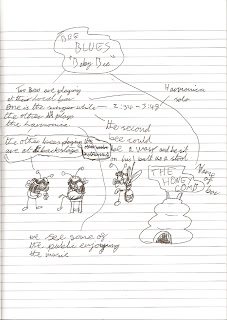 BEE
BLUES
"Baby Dee"
Two Bees are playing
at their local bar
one is the singer while
the other Bs plays
the harmonica
Harmonica
solo
2:40 - 3:49
the second
bee could
be a wasp and be sat
on his butt as a stool
the other bees playing the
are at the
THE
HONEY
COMB
Name
of
we see some of
the public enjoying
the music